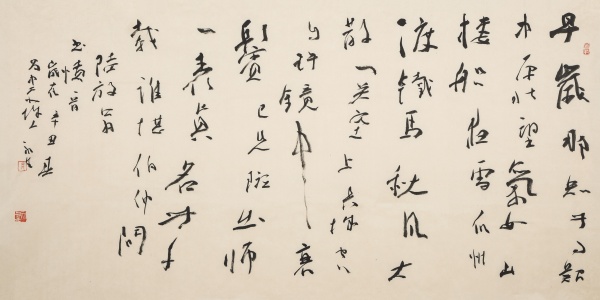 早歲那知世事艱
中原北望氣如山
楼船夜雪瓜州
渡鐵馬秋風大
散關塞上長城空
自許鏡中衰
鬢已先斑出師
一表真名世千
載誰堪伯仲間
陸放翁
書憤一首
歲在辛丑夏